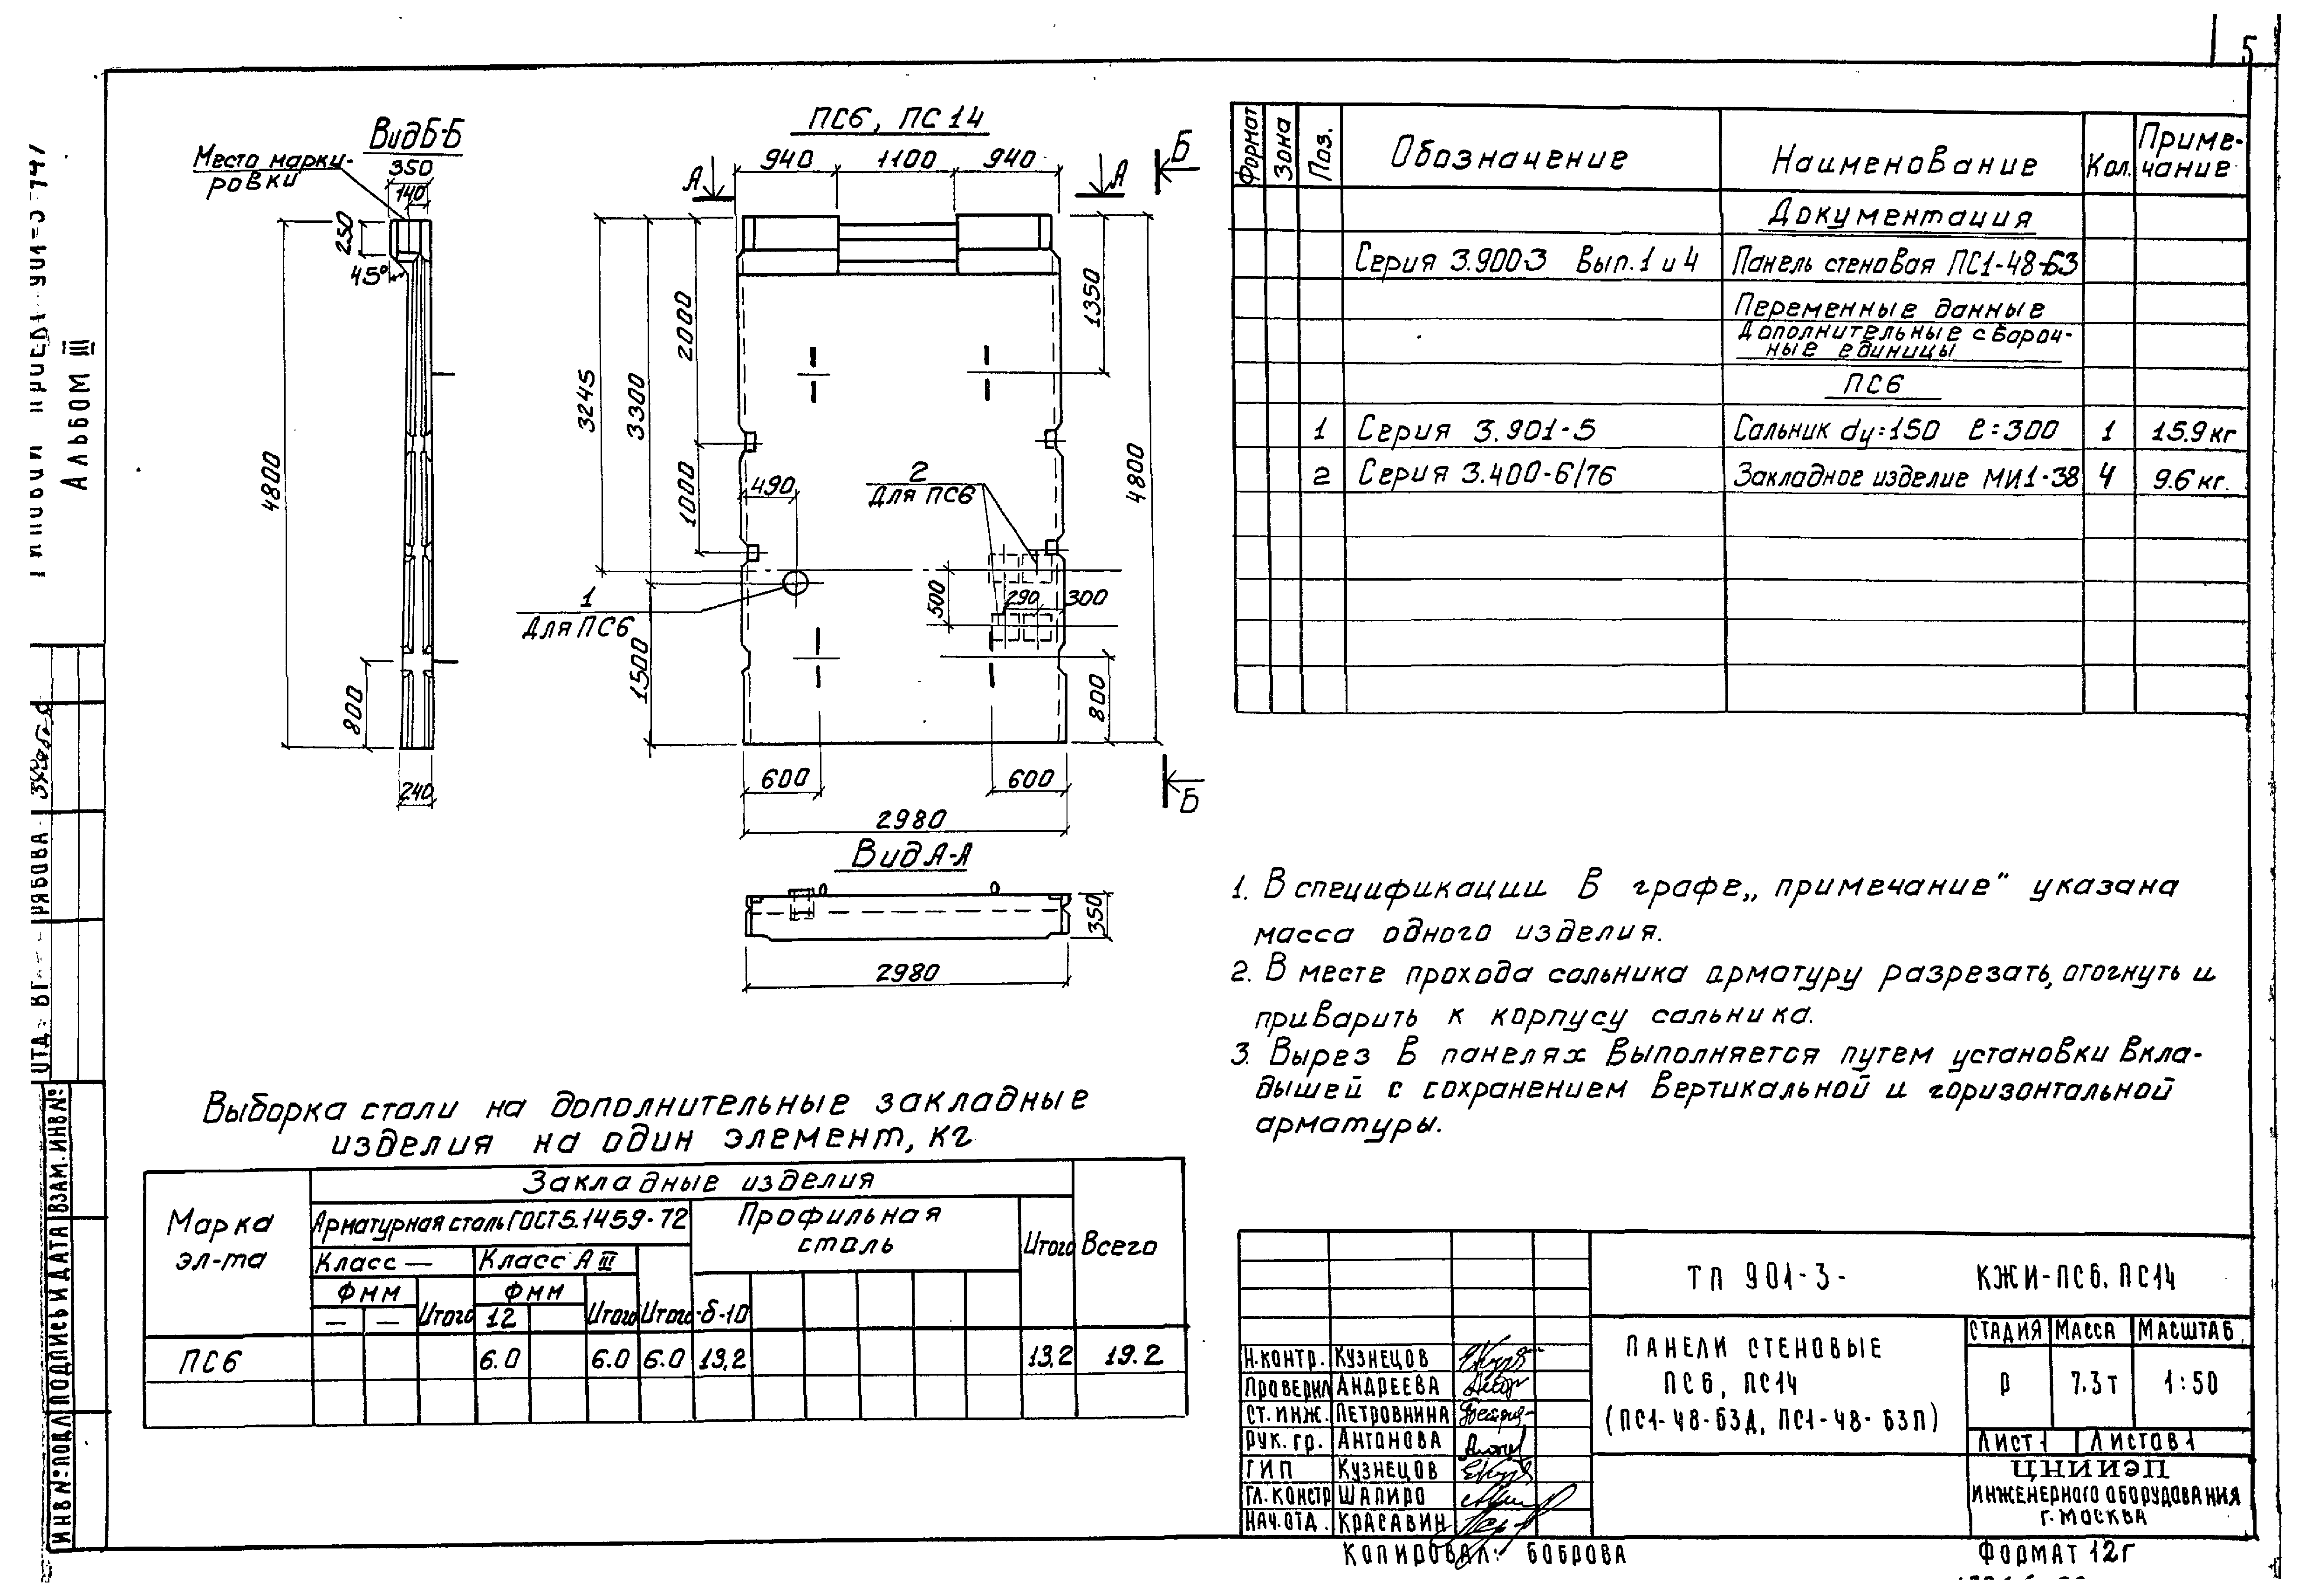 5
Альбом III
Вид Б-Б
Место марки-
ровки
350
140
250
45°
4800
800
240
ПС6, ПС14
940 1100 940
А А
Б
3245
3300
2000
1000
1500
490
1350
4800
2
Для ПС6
1
Для ПС6
500
290 300
800
600 600
2980
Б
Вид А-А
350
2980
Формат Зона Поз. Обозначение Наименование Кол. Приме-
чание
Документация
Серия 3.900-3 Вып. 1 и 4 Панель стеновая ПС1-48-Б3
Переменные данные
Дополнительные сбороч-
ные единицы
ПС6
1 Серия 3.901-5 Сальник dу=150 ℓ=300 1 15.9 кг
2 Серия 3.400-6/76 Закладное изделие МИ1-38 4 9.6 кг.
1. В спецификации в графе „примечание" указана
масса одного изделия.
2. В месте прохода сальника арматуру разрезать, отогнуть и
приварить к корпусу сальника.
3. Вырез в панелях выполняется путем установки вкла-
дышей с сохранением вертикальной и горизонтальной
арматуры.
Выборка стали на дополнительные закладные
изделия на один элемент, кг
Марка
эл-та
Закладные изделия
Арматурная сталь ГОСТ 5.1459-72
Профильная
сталь
Итого Всего
Класс — Класс А III
Фмм Фмм
— — Итого 12 Итого Итого -δ-10
ПС6 6.0 6.0 6.0 13,2 13,2 19.2
ТП 901-3- КЖИ-ПС6, ПС14
Панели стеновые
ПС6, ПС14
(ПС1-48-Б3Д, ПС1-48-Б3П)
Стадия Масса Масштаб
Р 7.3т 1:50
Лист 1 Листов 1
ЦНИИЭП
инженерного оборудования
г. Москва
Н.контр. Кузнецов
Проверил Андреева
Ст. инж. Петровнина
Рук. гр. Антонова
ГИП Кузнецов
Гл. констр Шапиро
Нач. отд. Красавин
Копировал: Боброва
Формат 12г
Рябова
Взам. инв №
Подпись и дата
Инв № подл